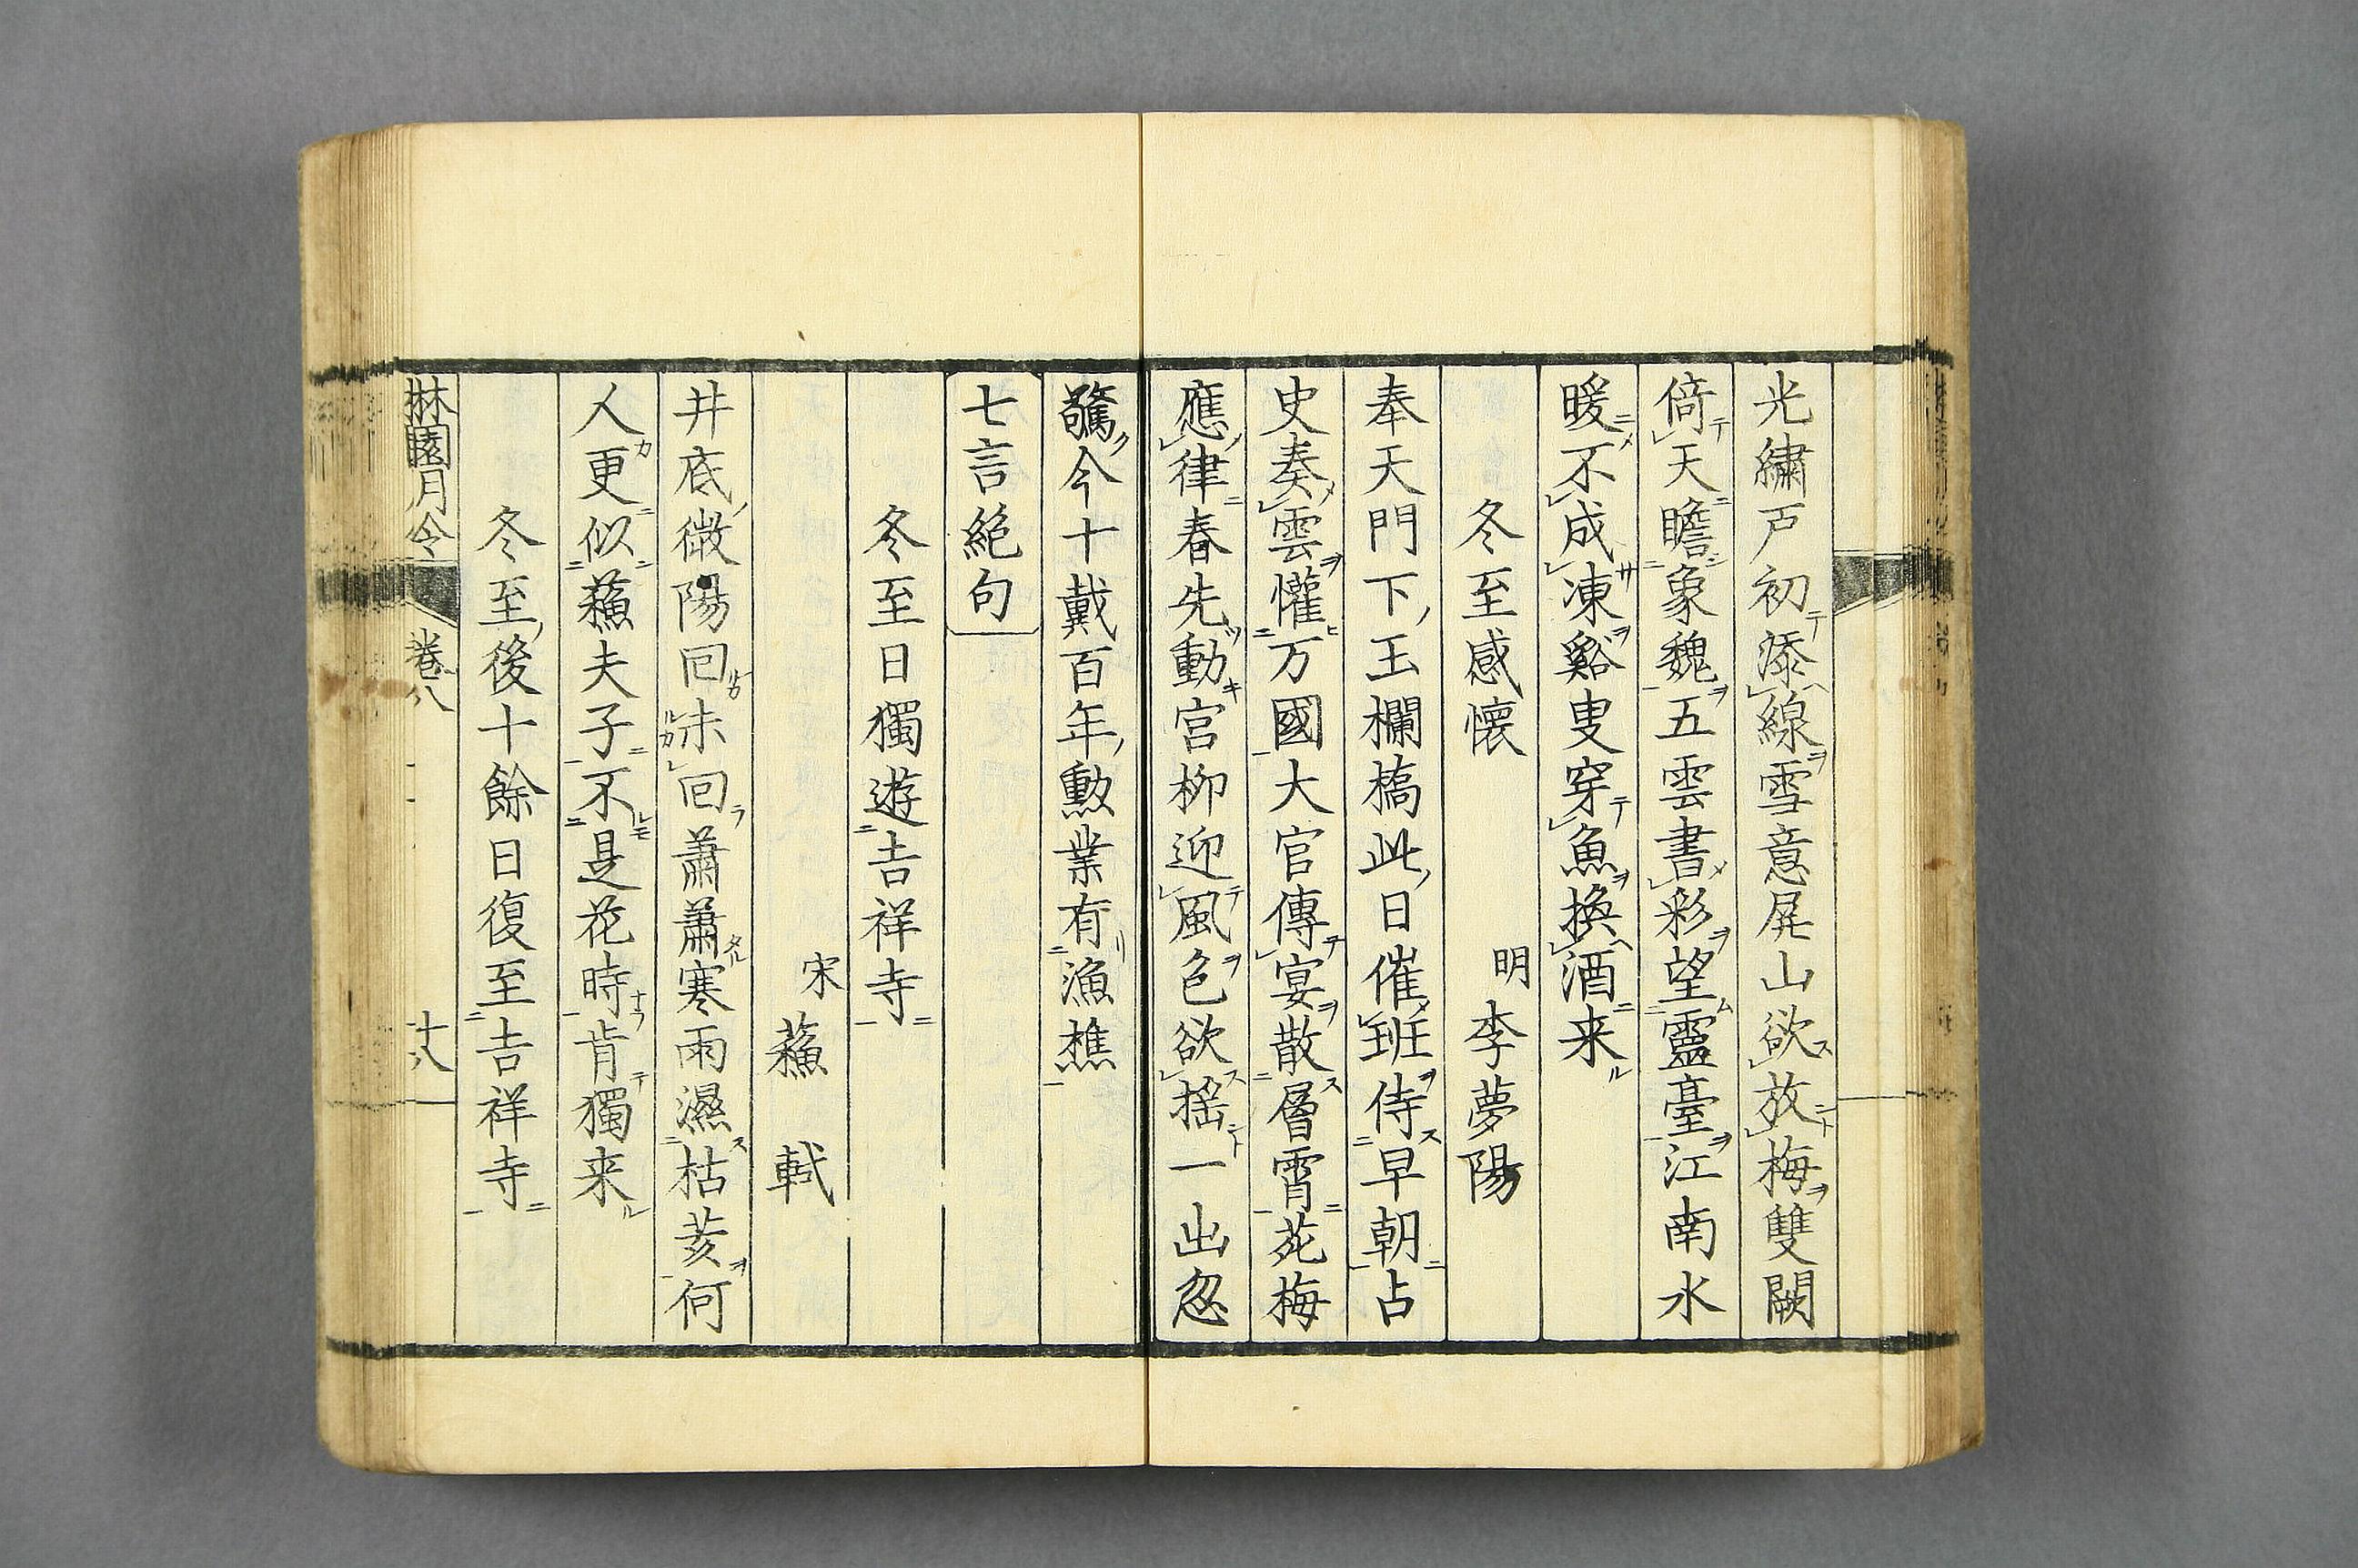 光繡戸初添線雪意屏山欲放梅雙闕
倚天瞻象魏五雲書彩望靈臺江南水
暖不成凍谿叟穿魚換酒来
冬至感懷
明 李夢陽
奉天門下玉欄橋此日催班侍早朝占
史奏雲懽万國大官傳宴散層霄苑梅
應律春先動宮柳迎風色欲揺一出忽
驚今十戴百年勲業有漁樵
七言絕句
冬至日獨遊吉祥寺
宋 蘓 軾
井底微陽回未回蕭蕭寒雨濕枯荄何
人更似蘓夫子不是花時肯獨来
冬至後十餘日復至吉祥寺
林園月令 卷八 十八